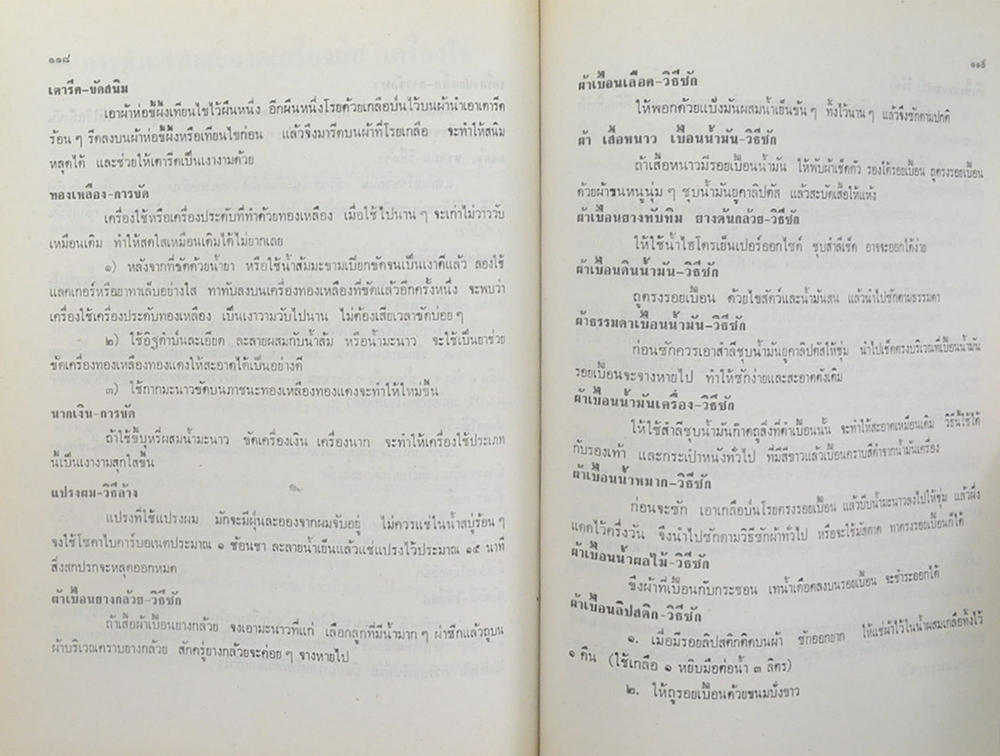 ๑๑๘
เตารีด-ขัดสนิม
เอาผ้าห่อขี้ผึ้งเทียนไขไว้ผืนหนึ่ง อีกผืนหนึ่งโรยด้วยเกลือป่นไว้บนผ้านำเอาเตารีด
ร้อน ๆ รีดลงบนผ้าห่อขี้ผึ้งหรือเทียนไขก่อน แล้วจึงมารีดบนผ้าที่โรยเกลือ จะทำให้สนิม
หลุดได้ และช่วยให้เตารีดเป็นเงางามด้วย
ทองเหลือง-การขัด
เครื่องใช้หรือเครื่องประดับที่ทำด้วยทองเหลือง เมื่อใช้ไปนาน ๆ จะเก่าไม่วาววับ
เหมือนเดิม ทำให้สดใสเหมือนเดิมได้ไม่ยากเลย
๑) หลังจากที่ขัดด้วยน้ำยา หรือใช้น้ำส้มมะขามเปียกขัดจนเป็นเงาดีแล้ว ลองใช้
แลคเกอร์หรือยาทาเล็บอย่างใส ทาทับลงบนเครื่องทองเหลืองที่ขัดแล้วอีกครั้งหนึ่ง จะพบว่า
เครื่องใช้เครื่องประดับทองเหลือง เป็นเงาวามวับไปนาน ไม่ต้องเสียเวลาขัดบ่อย ๆ
๒) ใช้อิฐตำป่นละเอียด ละลายผสมกับน้ำส้ม หรือน้ำมะนาว จะใช้เป็นยาช่วย
ขัดเครื่องทองเหลืองทองแดงให้สะอาดได้เป็นอย่างดี
๓) ใช้กากมะนาวขัดบนภาชนะทองเหลืองทองแดงจะทำให้ใหม่ขึ้น
นากเงิน-การขัด
ถ้าใช้ขี้บุหรี่ผสมน้ำมะนาว ขัดเครื่องเงิน เครื่องนาก จะทำให้เครื่องใช้ประเภท
นี้เป็นเงางามสุกใสขึ้น
แปรงผม-วิธีล้าง
แปรงที่ใช้แปรงผม มักจะมีฝุ่นละอองจากผมจับอยู่ ไม่ควรแช่ในน้ำสบู่ร้อน ๆ
จงใช้โซดาไบคาร์บอเนตประมาณ ๑ ช้อนชา ละลายน้ำเย็นแล้วแช่แปรงไว้ประมาณ ๑๕ นาที
สิ่งสกปรกจะหลุดออกหมด
ผ้าเปื้อนยางกล้วย-วิธีซัก
ถ้าเสื้อผ้าเปื้อนยางกล้วย จงเอามะนาวที่แก่ เลือกลูกที่มีน้ำมาก ๆ ผ่าซีกแล้วถูบน
ผ้าบริเวณคราบยางกล้วย สักครู่ยางกล้วยจะค่อย ๆ จางหายไป
๑๑๙
ผ้าเปื้อนเลือด-วิธีซัก
ให้พอกด้วยแป้งมันผสมน้ำเย็นข้น ๆ ทิ้งไว้นาน ๆ แล้วจึงซักตามปกติ
ผ้า เสื้อหนาว เปื้อนน้ำมัน-วิธีซัก
ถ้าเสื้อหนาวมีรอยเปื้อนน้ำมัน ให้พับผ้าเช็ดตัว รองใต้รอยเปื้อน ถูตรงรอยเปื้อน
ด้วยผ้าขนหนูนุ่ม ๆ ชุบน้ำมันยูคาลิปตัส แล้วสะบัดเสื้อให้แห้ง
ผ้าเปื้อนยางทับทิม ยางต้นกล้วย-วิธีซัก
ให้ใช้น้ำไฮโดรเย็นเปอร์ออกไซด์ ชุบสำลีเช็ด อาจจะออกได้ง่าย
ผ้าเปื้อนดินน้ำมัน-วิธีซัก
ถูตรงรอยเปื้อน ด้วยไขสัตว์และน้ำมันสน แล้วนำไปซักตามธรรมดา
ผ้าธรรมดาเปื้อนน้ำมัน-วิธีซัก
ก่อนซักควรเอาสำลีชุบน้ำมันยูคาลิปตัสให้ชุ่ม นำไปเช็ดตรงบริเวณที่เปื้อนน้ำมัน
รอยเปื้อนจะจางหายไป ทำให้ซักง่ายและสะอาดดังเดิม
ผ้าเปื้อนน้ำมันเครื่อง-วิธีซัก
ให้ใช้สำลีชุบน้ำมันก๊าดถูสิ่งที่ดำเปื้อนนั้น จะทำให้สะอาดเหมือนเดิม วิธีนี้ใช้ได้
กับรองเท้า และกระเป๋าหนังทั่วไป ที่มีสีขาวแล้วเปื้อนคราบสีดำจากน้ำมันเครื่อง
ผ้าเปื้อนน้ำหมาก-วิธีซัก
ก่อนจะซัก เอาเกลือป่นโรยตรงรอยเปื้อน แล้วบีบน้ำมะนาวลงไปให้ชุ่ม แล้วผึ่ง
แดดไว้ครึ่งวัน จึงนำไปซักตามวิธีซักผ้าทั่วไป หรือจะใช้มัสตาด ทาตรงรอยเปื้อนก็ได้
ผ้าเปื้อนน้ำผลไม้-วิธีซัก
ขึงผ้าที่เปื้อนกับกระชอน เทน้ำเดือดลงบนรอยเปื้อน จะชำระออกได้
ผ้าเปื้อนลิปสติก-วิธีซัก
๑. เมื่อมีรอยลิปสติกติดบนผ้า ซักออกยาก ให้แช่ผ้าไว้ในน้ำผสมเกลือทิ้งไว้
๑ คืน (ใช้เกลือ ๑ หยิบมือต่อน้ำ ๓ ลิตร)
๒. ให้ถูรอยเปื้อนด้วยขนมปังขาว